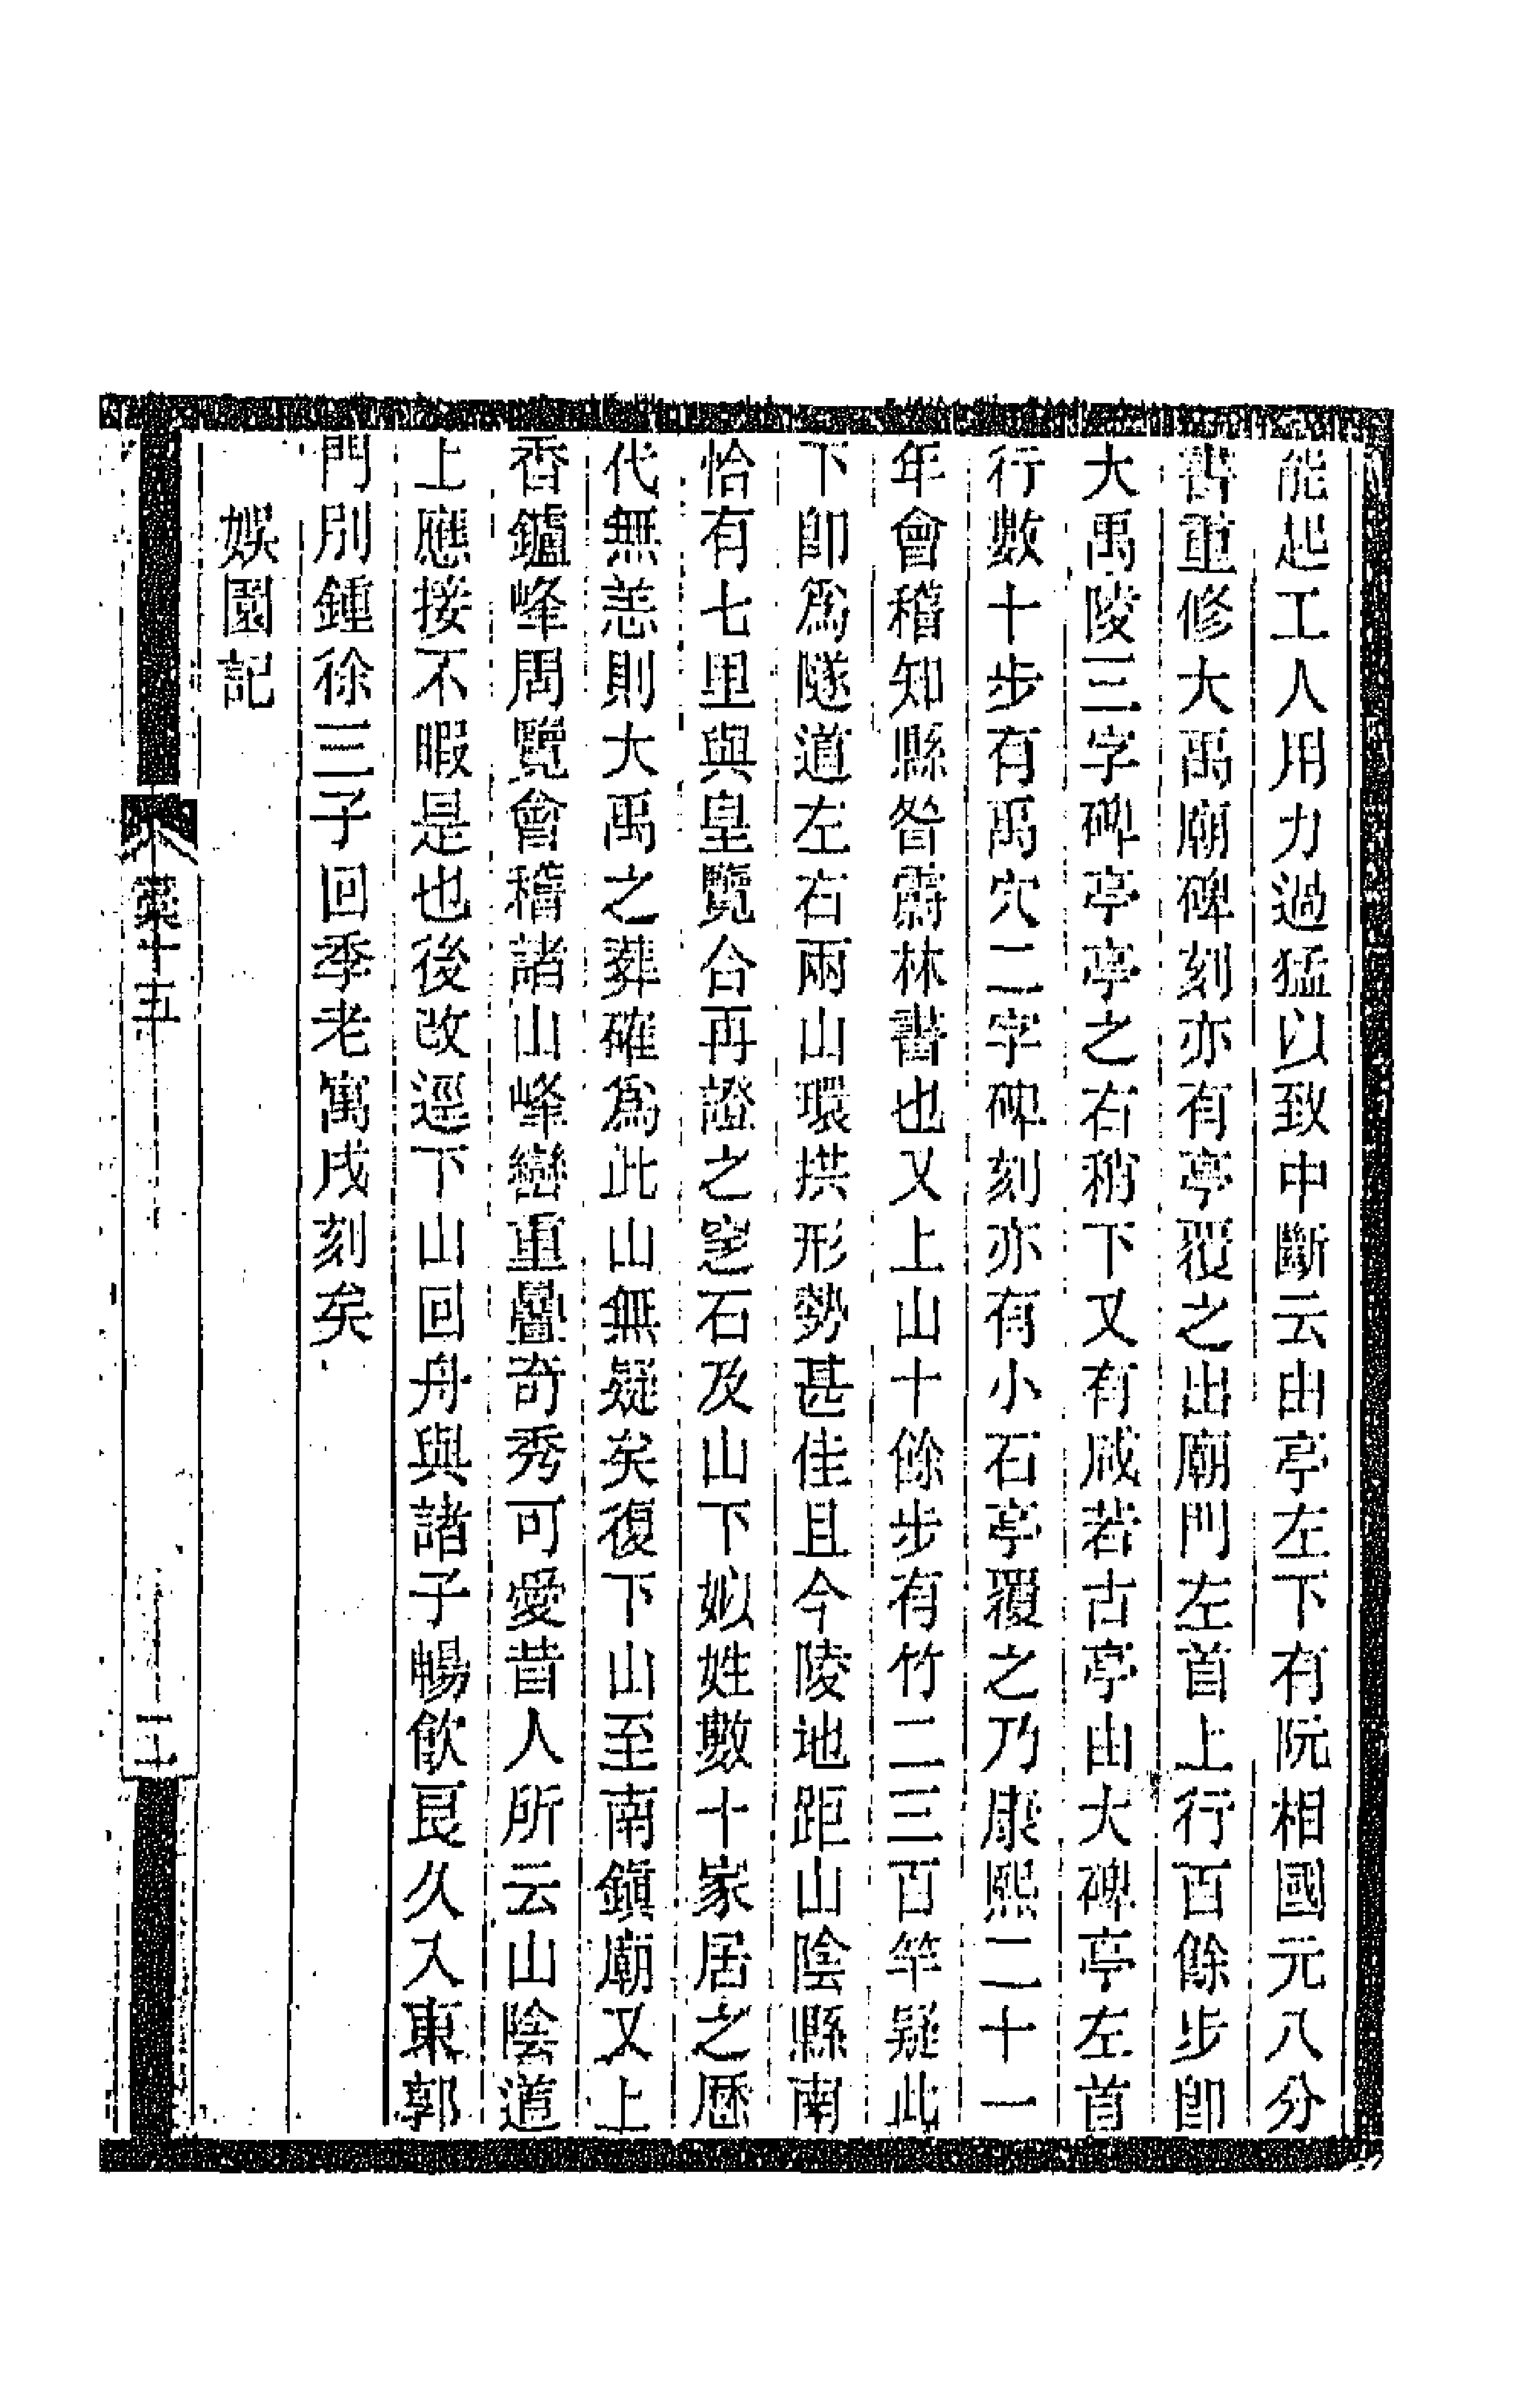 能起工人用力過猛以致中斷云由亭左下有阮相國元八分
書重修大禹廟碑刻亦有亭覆之出廟門左首上行百餘步卽
大禹陵三字碑亭亭之右稍下又有咸若古亭由大碑亭左首
行數十步有禹穴二字碑刻亦有小石亭覆之乃康熙二十一
年會稽知縣昝霨林書也又上山十餘步有竹二三百竿疑此
下卽爲隧道左右兩山環拱形勢甚佳且今陵地距山陰縣南
恰有七里與皇覽合再證之窆石及山下姒姓數十家居之歷
代無恙則大禹之葬確爲此山無疑矣復下山至南鎭廟又上
香鑪峰周覽會稽諸山峰巒重疊奇秀可愛昔人所云山陰道
上應接不暇是也後改逕下山回舟與諸子暢飮良久入東郭
門別鍾徐三子回季老寓戌刻矣
娛園記
稾十五
二十